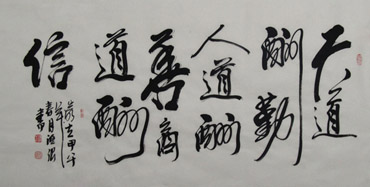 天道
酬勤
人道酬
善商
道酬
信
歲在甲午
春月
書